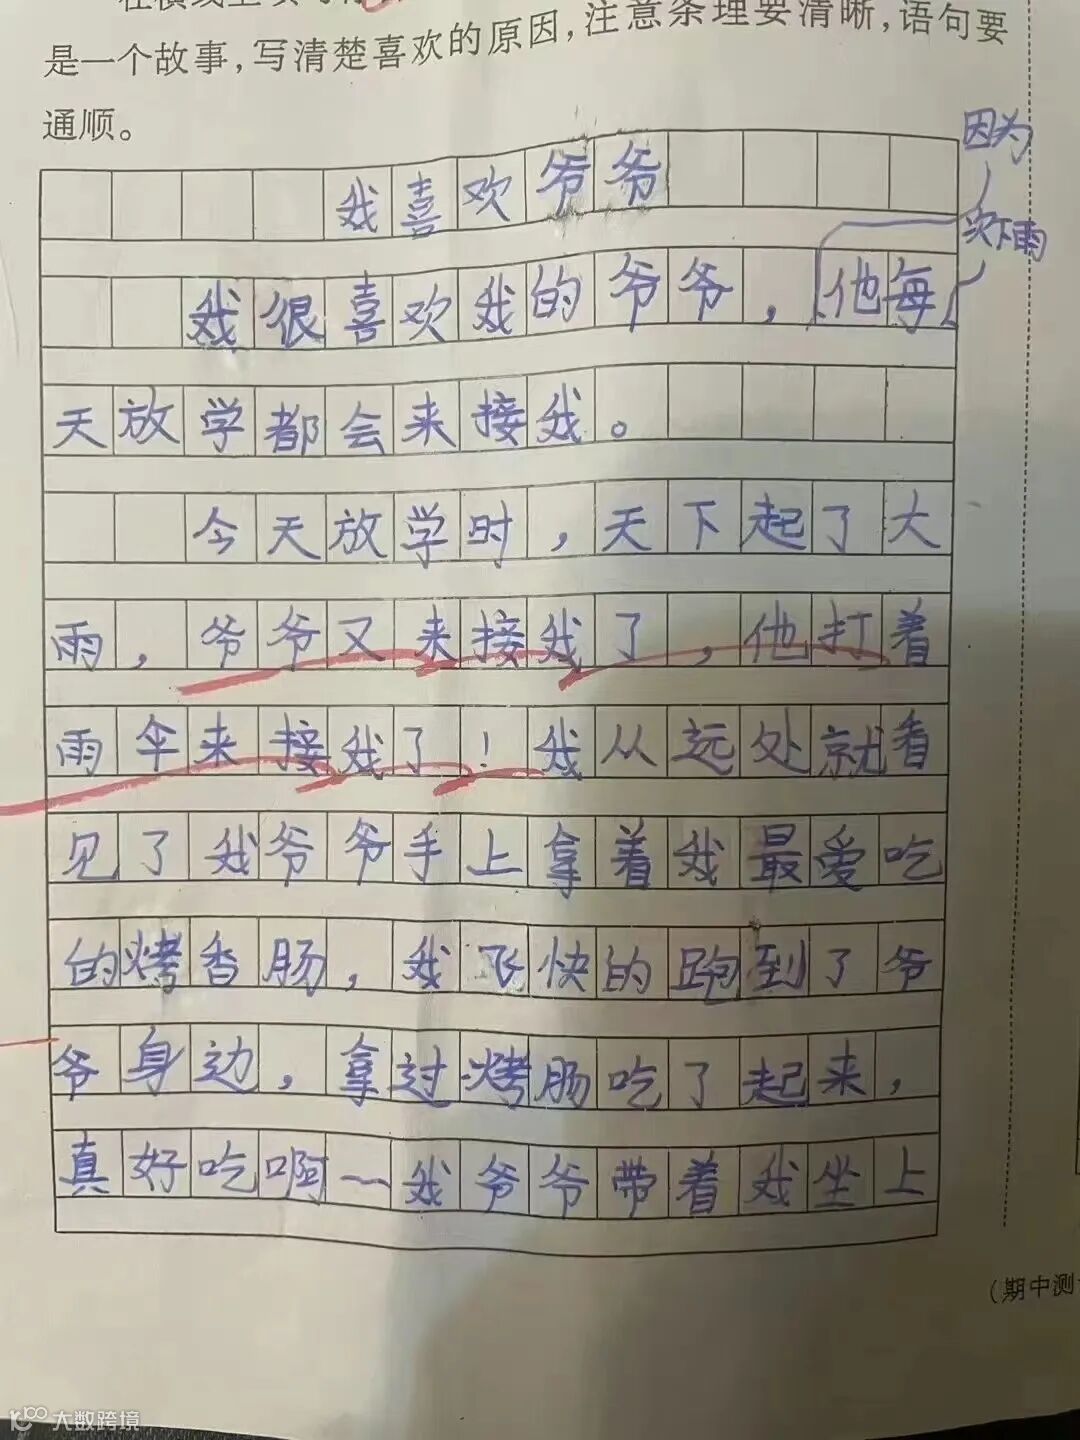 是一个故事，写清楚喜欢的原因，注意条理要清晰，语句要
通顺。
因为
我喜欢爷爷
下雨
我很喜欢我的爷爷，他每
天放学都会来接我。
今天放学时，天下起了大
雨，爷爷又来接我了，他打着
雨伞来接我了！我从远处就看
见了我爷爷手上拿着我最爱吃
的烤香肠，我飞快的跑到了爷
爷身边，拿过烤肠吃了起来，
真好吃啊～我爷爷带着我坐上
（期中测
大数跨境